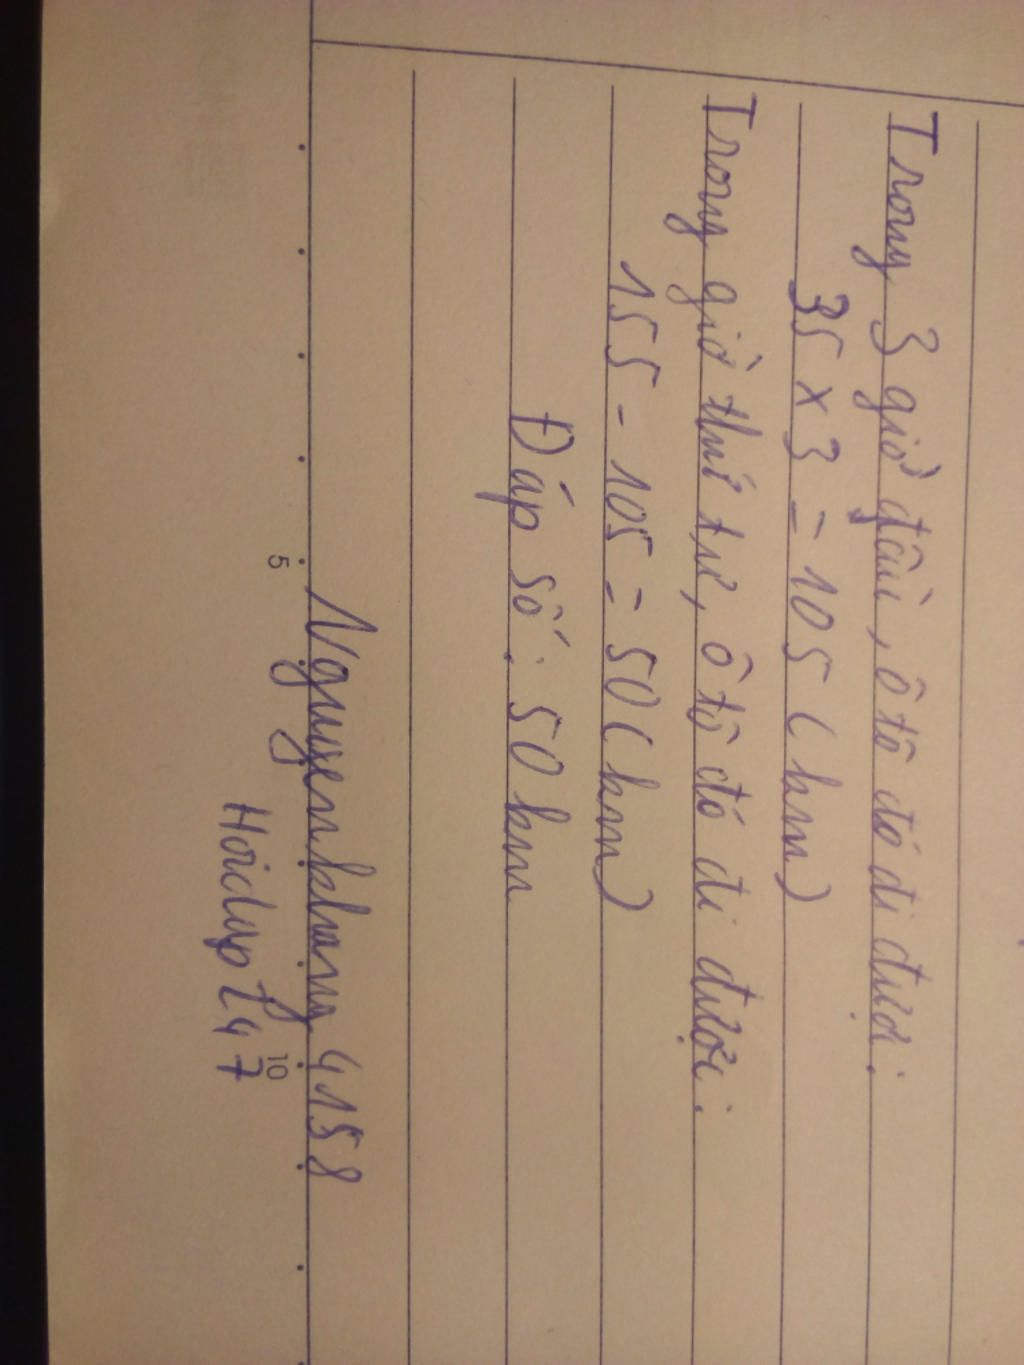 Trong 3 giờ đầu, ô tô đó đi được:
35 x 3 = 105 (km)
Trong giờ thứ tư, ô tô đó đi được:
155 - 105 = 50 (km)
Đáp số: 50 km
Nguyenkhang 4158
5 10
Hoidap 247